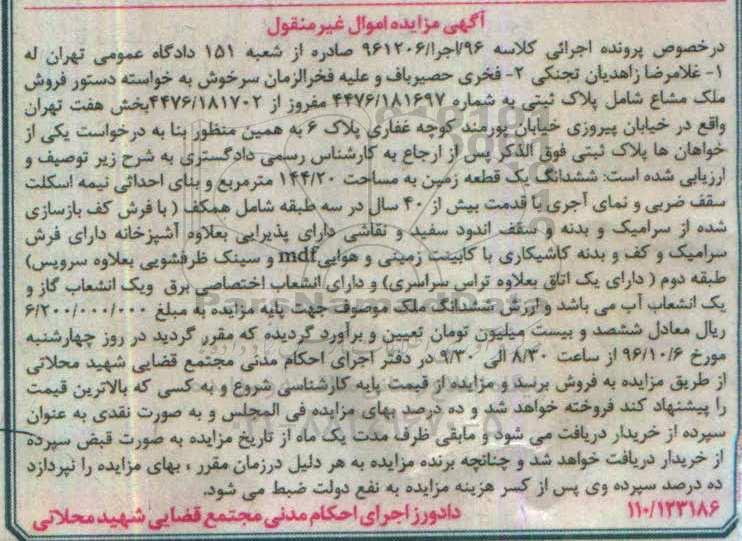 آگهی مزایده اموال غیرمنقول
درخصوص پرونده اجرائی کلاسه ۹۶/اجرا/۹۶۱۲۰۶ صادره از شعبه ۱۵۱ دادگاه عمومی تهران له
۱- غلامرضا زاهدیان تجنکی ۲- فخری حصیرباف و علیه فخرالزمان سرخوش به خواسته دستور فروش
ملک مشاع شامل پلاک ثبتی به شماره ۴۴۷۶/۱۸۱۶۹۷ مفروز از ۴۴۷۶/۱۸۱۷۰۲بخش هفت تهران
واقع در خیابان پیروزی خیابان پورمند کوچه غفاری پلاک ۶ به همین منظور بنا به درخواست یکی از
خواهان ها پلاک ثبتی فوق الذکر پس از ارجاع به کارشناس رسمی دادگستری به شرح زیر توصیف و
ارزیابی شده است: ششدانگ یک قطعه زمین به مساحت ۱۴۴/۲۰ مترمربع و بنای احداثی نیمه اسکلت
سقف ضربی و نمای آجری با قدمت بیش از ۴۰ سال در سه طبقه شامل همکف ( با فرش کف بازسازی
شده از سرامیک و بدنه و سقف اندود سفید و نقاشی دارای پذیرایی بعلاوه آشپزخانه دارای فرش
سرامیک و کف و بدنه کاشیکاری با کابینت زمینی و هوایی mdf و سینک ظرفشویی بعلاوه سرویس)
طبقه دوم ( دارای یک اتاق بعلاوه تراس سراسری) و دارای انشعاب اختصاصی برق ویک انشعاب گاز و
یک انشعاب آب می باشد و ارزش ششدانگ ملک موصوف جهت پایه مزایده به مبلغ ۶/۲۰۰/۰۰۰/۰۰۰
ریال معادل ششصد و بیست میلیون تومان تعیین و برآورد گردیده که مقرر گردید در روز چهارشنبه
مورخ ۹۶/۱۰/۶ از ساعت ۸/۳۰ الی ۹/۳۰ در دفتر اجرای احکام مدنی مجتمع قضایی شهید محلاتی
از طریق مزایده به فروش برسد و مزایده از قیمت پایه کارشناسی شروع و به کسی که بالاترین قیمت
را پیشنهاد کند فروخته خواهد شد و ده درصد بهای مزایده فی المجلس و به صورت نقدی به عنوان
سپرده از خریدار دریافت می شود و مابقی ظرف مدت یک ماه از تاریخ مزایده به صورت قبض سپرده
از خریدار دریافت خواهد شد و چنانچه برنده مزایده به هر دلیل درزمان مقرر ، بهای مزایده را نپردازد
ده درصد سپرده وی پس از کسر هزینه مزایده به نفع دولت ضبط می شود.
۱۱۰/۱۲۳۱۸۶ دادورز اجرای احکام مدنی مجتمع قضایی شهید محلاتی
ParsNamadData